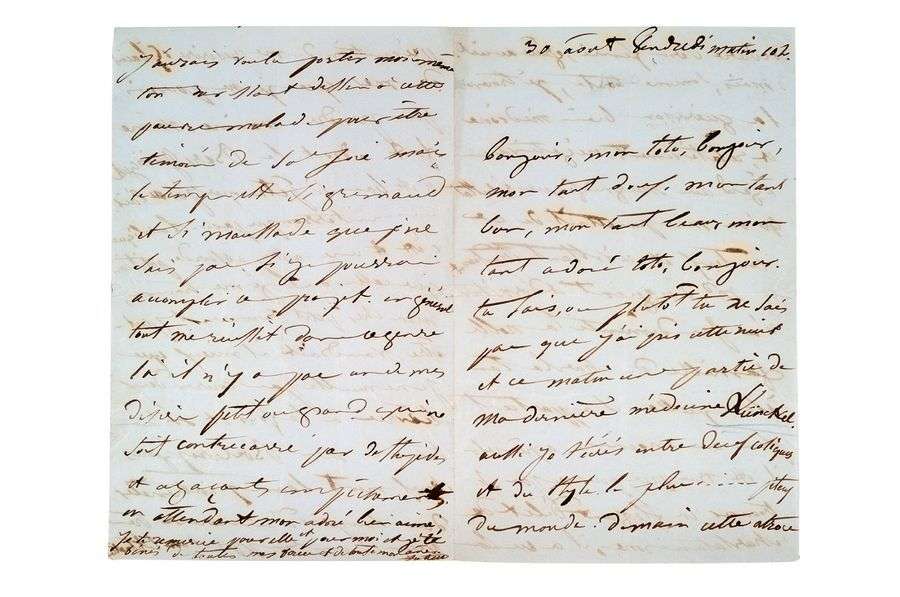 30 août Vendredi matin 10h.
bonjour, mon toto, bonjour,
mon tant doux, mon tant
bon, mon tant beau, mon
tant adoré toto, bonjour.
tu sais, ou plutôt tu ne sais
pas que j'ai pris cette nuit
et ce matin une partie de
ma dernière médecine
aussi je t'écris entre deux coliques
et du style le plus ......
du monde. Demain cette atroce
j'aurais voulu porter moi même
ton ravissant dessin à cette
pauvre malade pour être
témoin de sa joie mais
le temps est si grimaud
et si maussade que je ne
sais pas si je pourrai
accomplir ce projet. en général
tout me réussit dans ce genre
là il n'y a pas un de mes
désirs petit ou grand qui ne
soit contrecarré par de stupides
et agaçants empêchements
en attendant mon adoré bien aimé
je te remercie pour elle et pour moi et je te
toutes mes forces et de toute mon âme